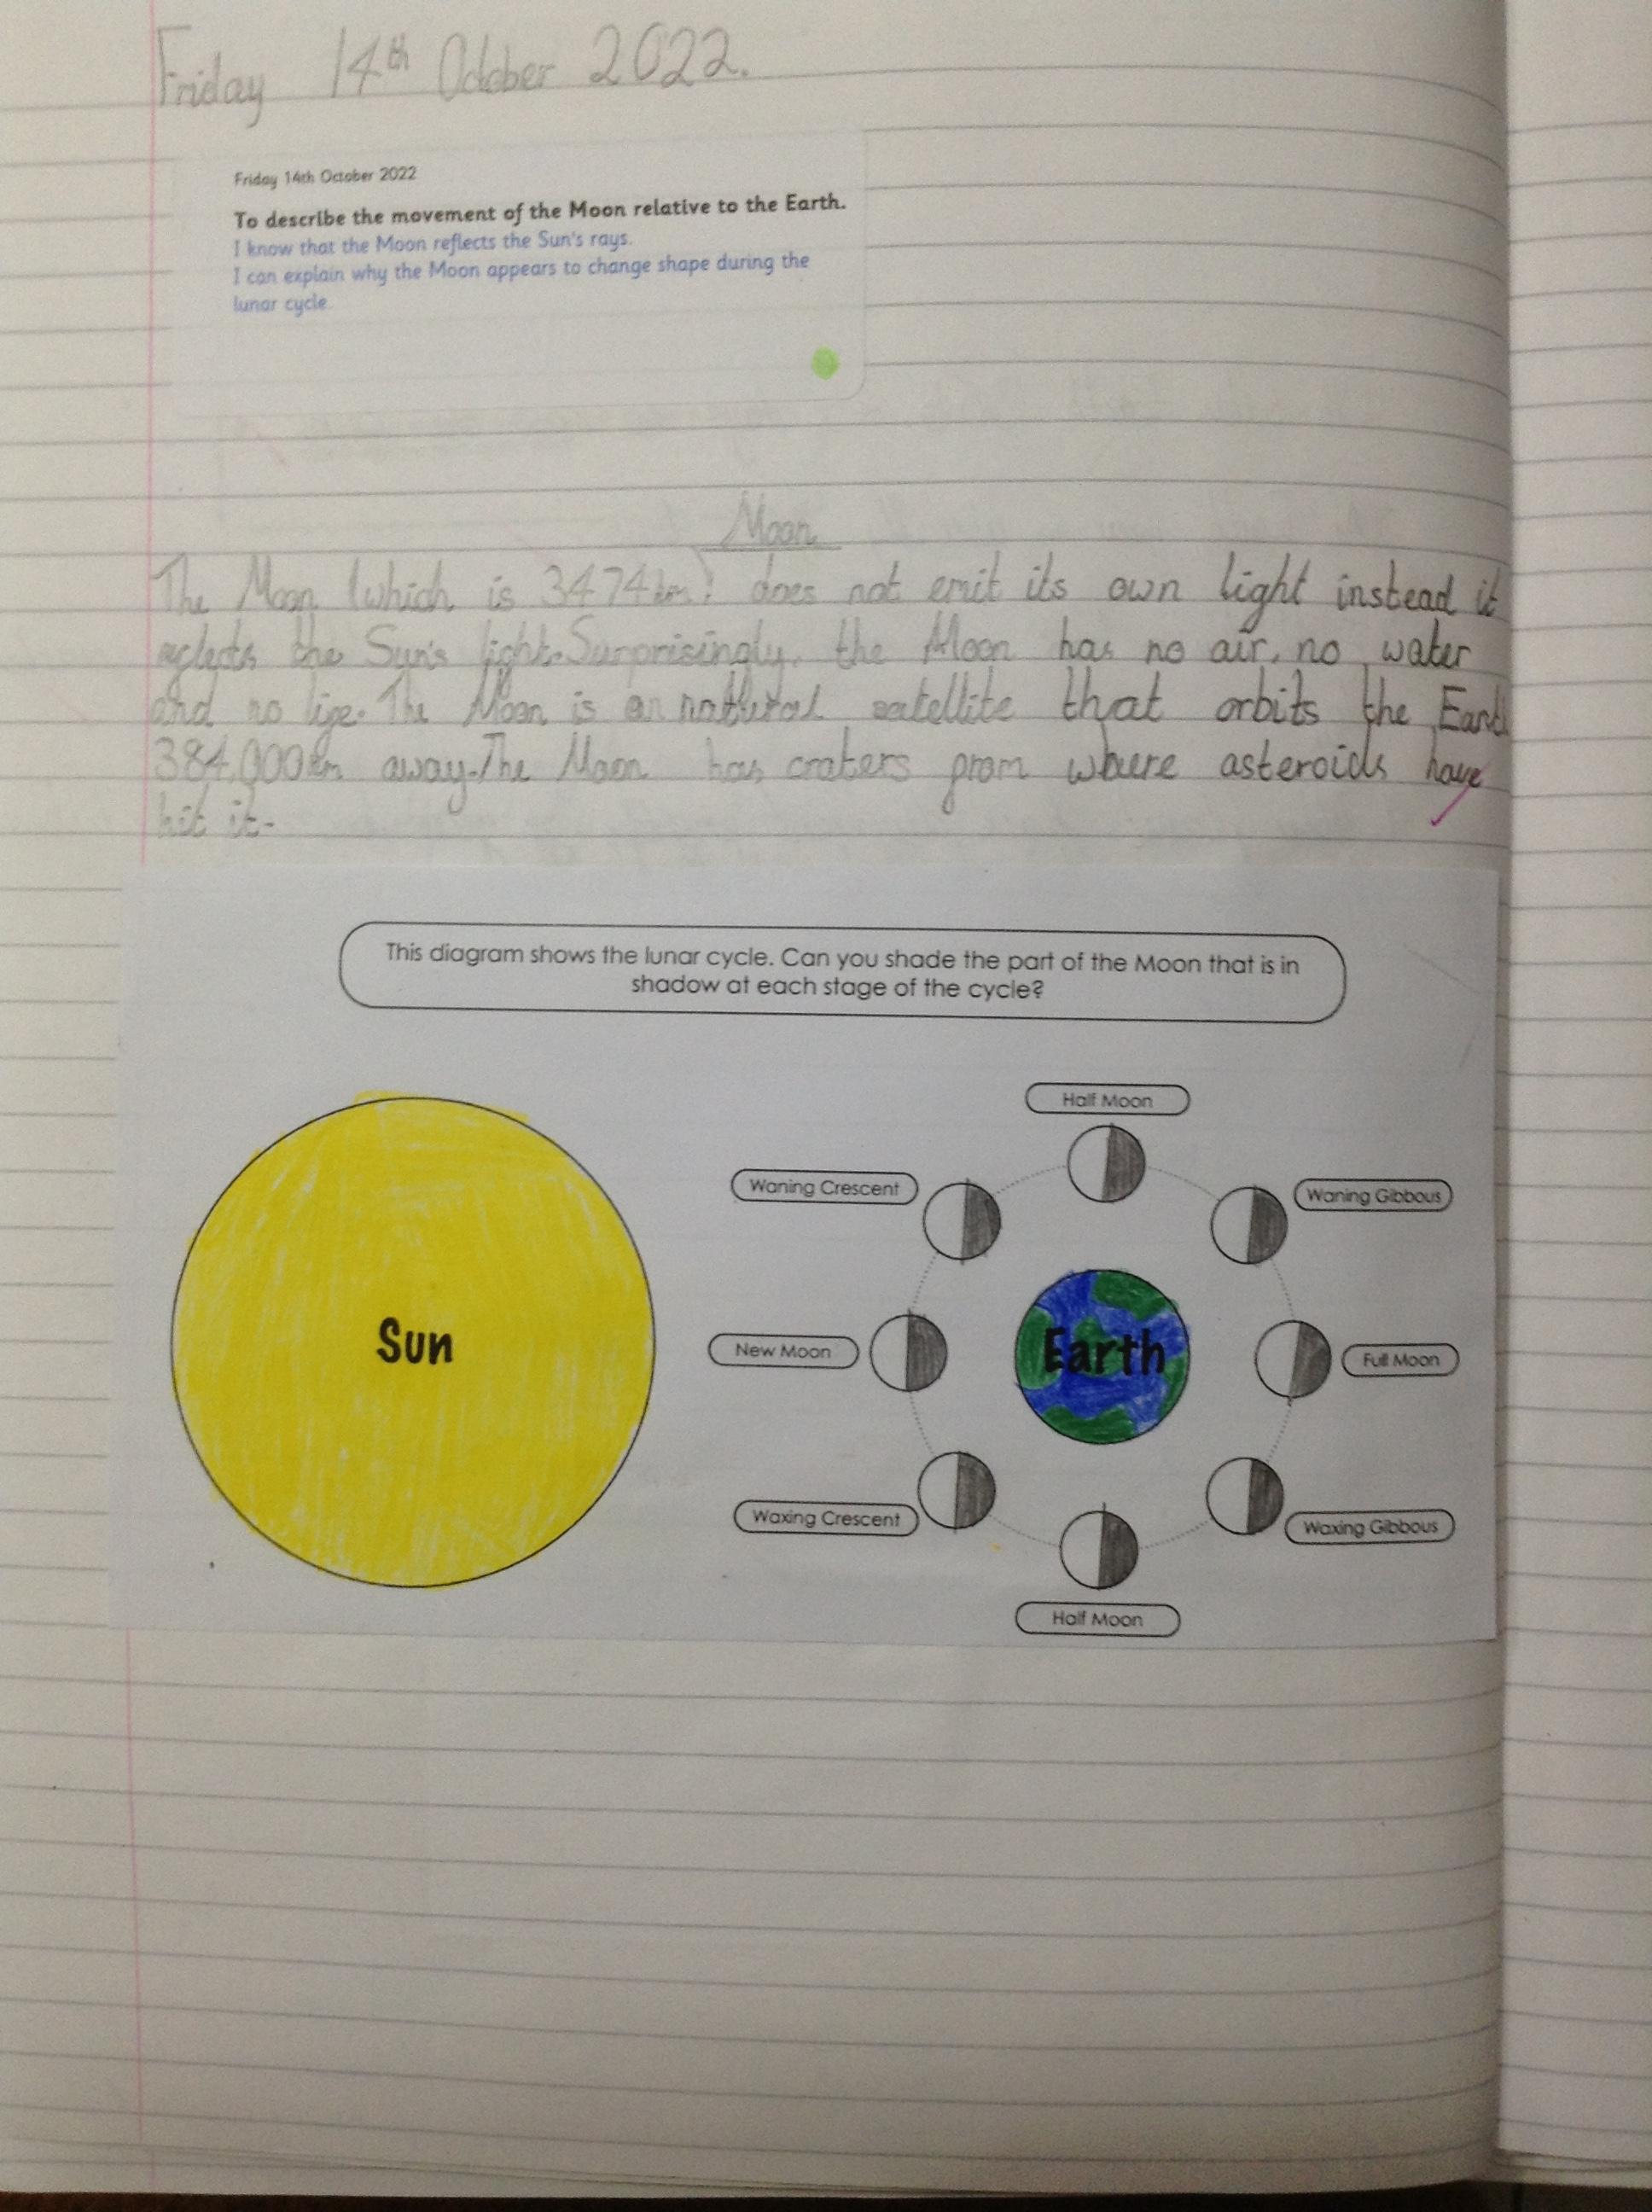 Friday 14th October 2022.
Friday 14th October 2022
To describe the movement of the Moon relative to the Earth.
I know that the Moon reflects the Sun's rays.
I can explain why the Moon appears to change shape during the
lunar cycle.
Moon
The Moon (which is 3474km) does not emit its own light instead it
reflects the Sun's light. Surprisingly, the Moon has no air, no water
and no life. The Moon is an natural satellite that orbits the Earth
384,000km away. The Moon has craters from where asteroids have
hit it.
This diagram shows the lunar cycle. Can you shade the part of the Moon that is in
shadow at each stage of the cycle?
Half Moon
Waning Crescent
Waning Gibbous
Sun
Earth
New Moon
Full Moon
Waxing Crescent
Waxing Gibbous
Half Moon